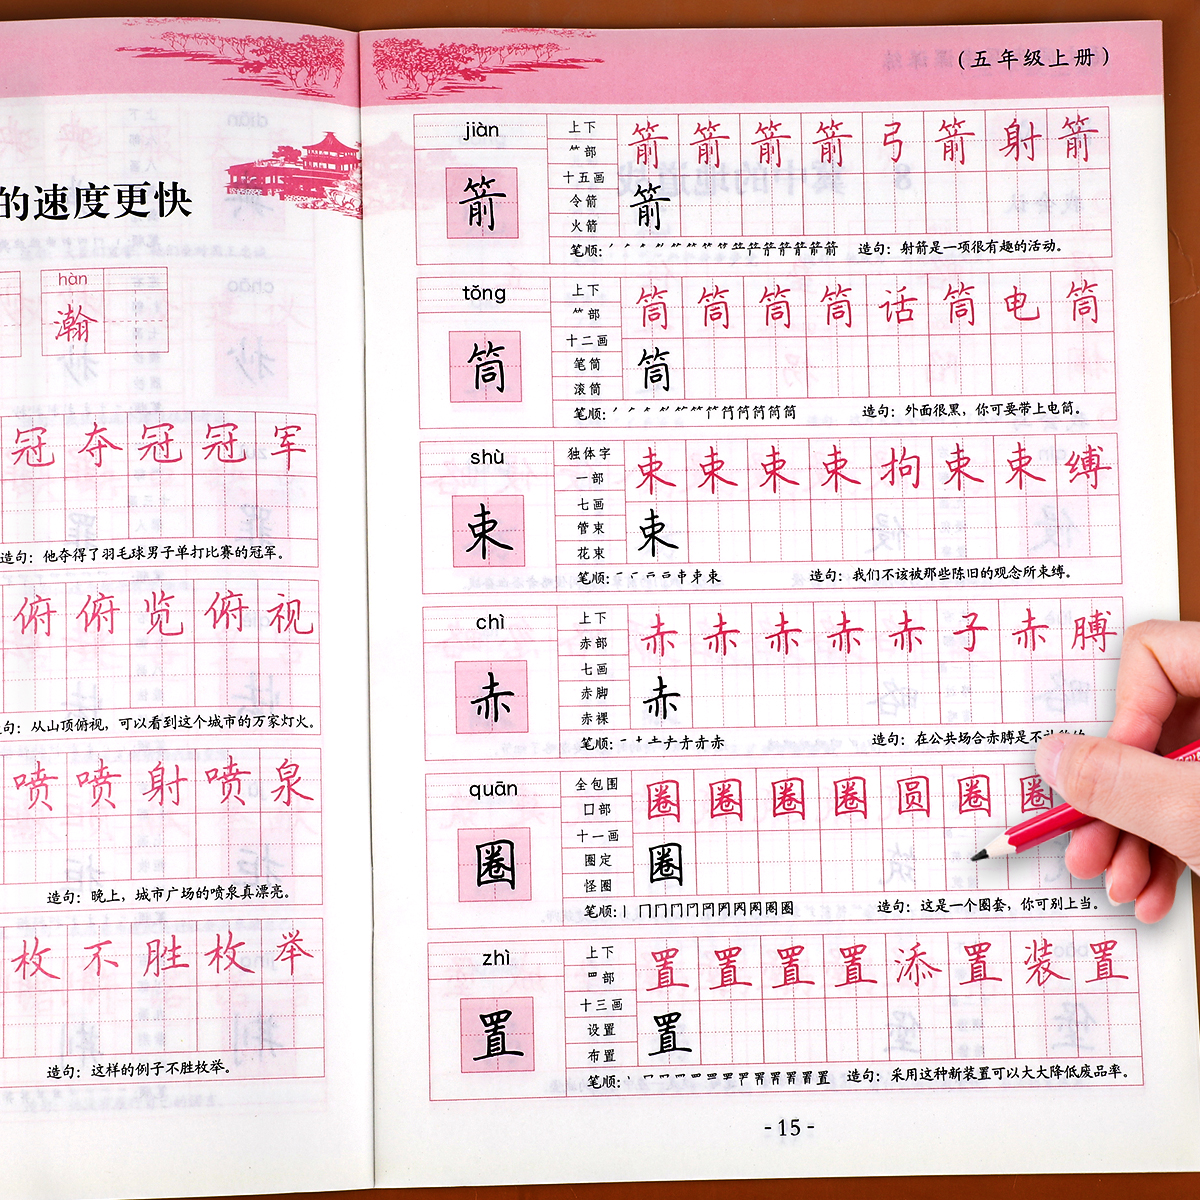 的速度更快
hàn
瀚
冠 夺 冠 冠 军
造句：他夺得了羽毛球男子单打比赛的冠军。
俯 俯 览 俯 视
句：从山顶俯视，可以看到这个城市的万家灯火。
喷 喷 射 喷 泉
造句：晚上，城市广场的喷泉真漂亮。
枚 不 胜 枚 举
造句：这样的例子不胜枚举。
（五年级上册）
jiàn
箭
上下
⺮部
十五画
令箭
火箭
箭 箭 箭 箭 弓 箭 射 箭
箭
笔顺：
造句：射箭是一项很有趣的活动。
tǒng
筒
上下
⺮部
十二画
笔筒
滚筒
筒 筒 筒 筒 话 筒 电 筒
筒
笔顺：
造句：外面很黑，你可要带上电筒。
shù
束
独体字
一部
七画
管束
花束
束 束 束 束 拘 束 束 缚
束
笔顺：
造句：我们不该被那些陈旧的观念所束缚。
chì
赤
上下
赤部
七画
赤脚
赤裸
赤 赤 赤 赤 赤 子 赤 膊
赤
笔顺：
造句：在公共场合赤膊是不
quān
圈
全包围
口部
十一画
圈定
怪圈
圈 圈 圈 圈 圆 圈 圈
圈
笔顺：
造句：这是一个圈套，你可别上当。
zhì
置
上下
罒部
十三画
设置
布置
置 置 置 置 添 置 装 置
置
笔顺：
造句：采用这种新装置可以大大降低废品率。
- 15 -